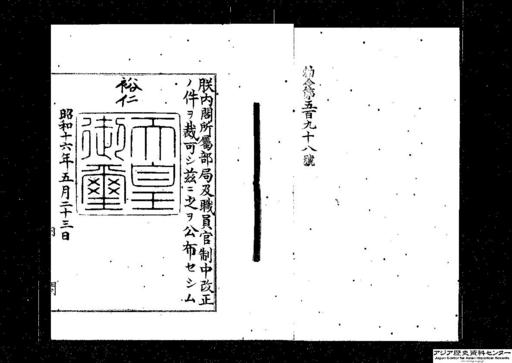 勅令第五百九十八號
朕内閣所屬部局及職員官制中改正
ノ件ヲ裁可シ茲ニ之ヲ公布セシム
裕仁
天皇
御璽
昭和十六年五月二十三日
内
閣
アジア歴史資料センター
Japan Center for Asian Historical Records